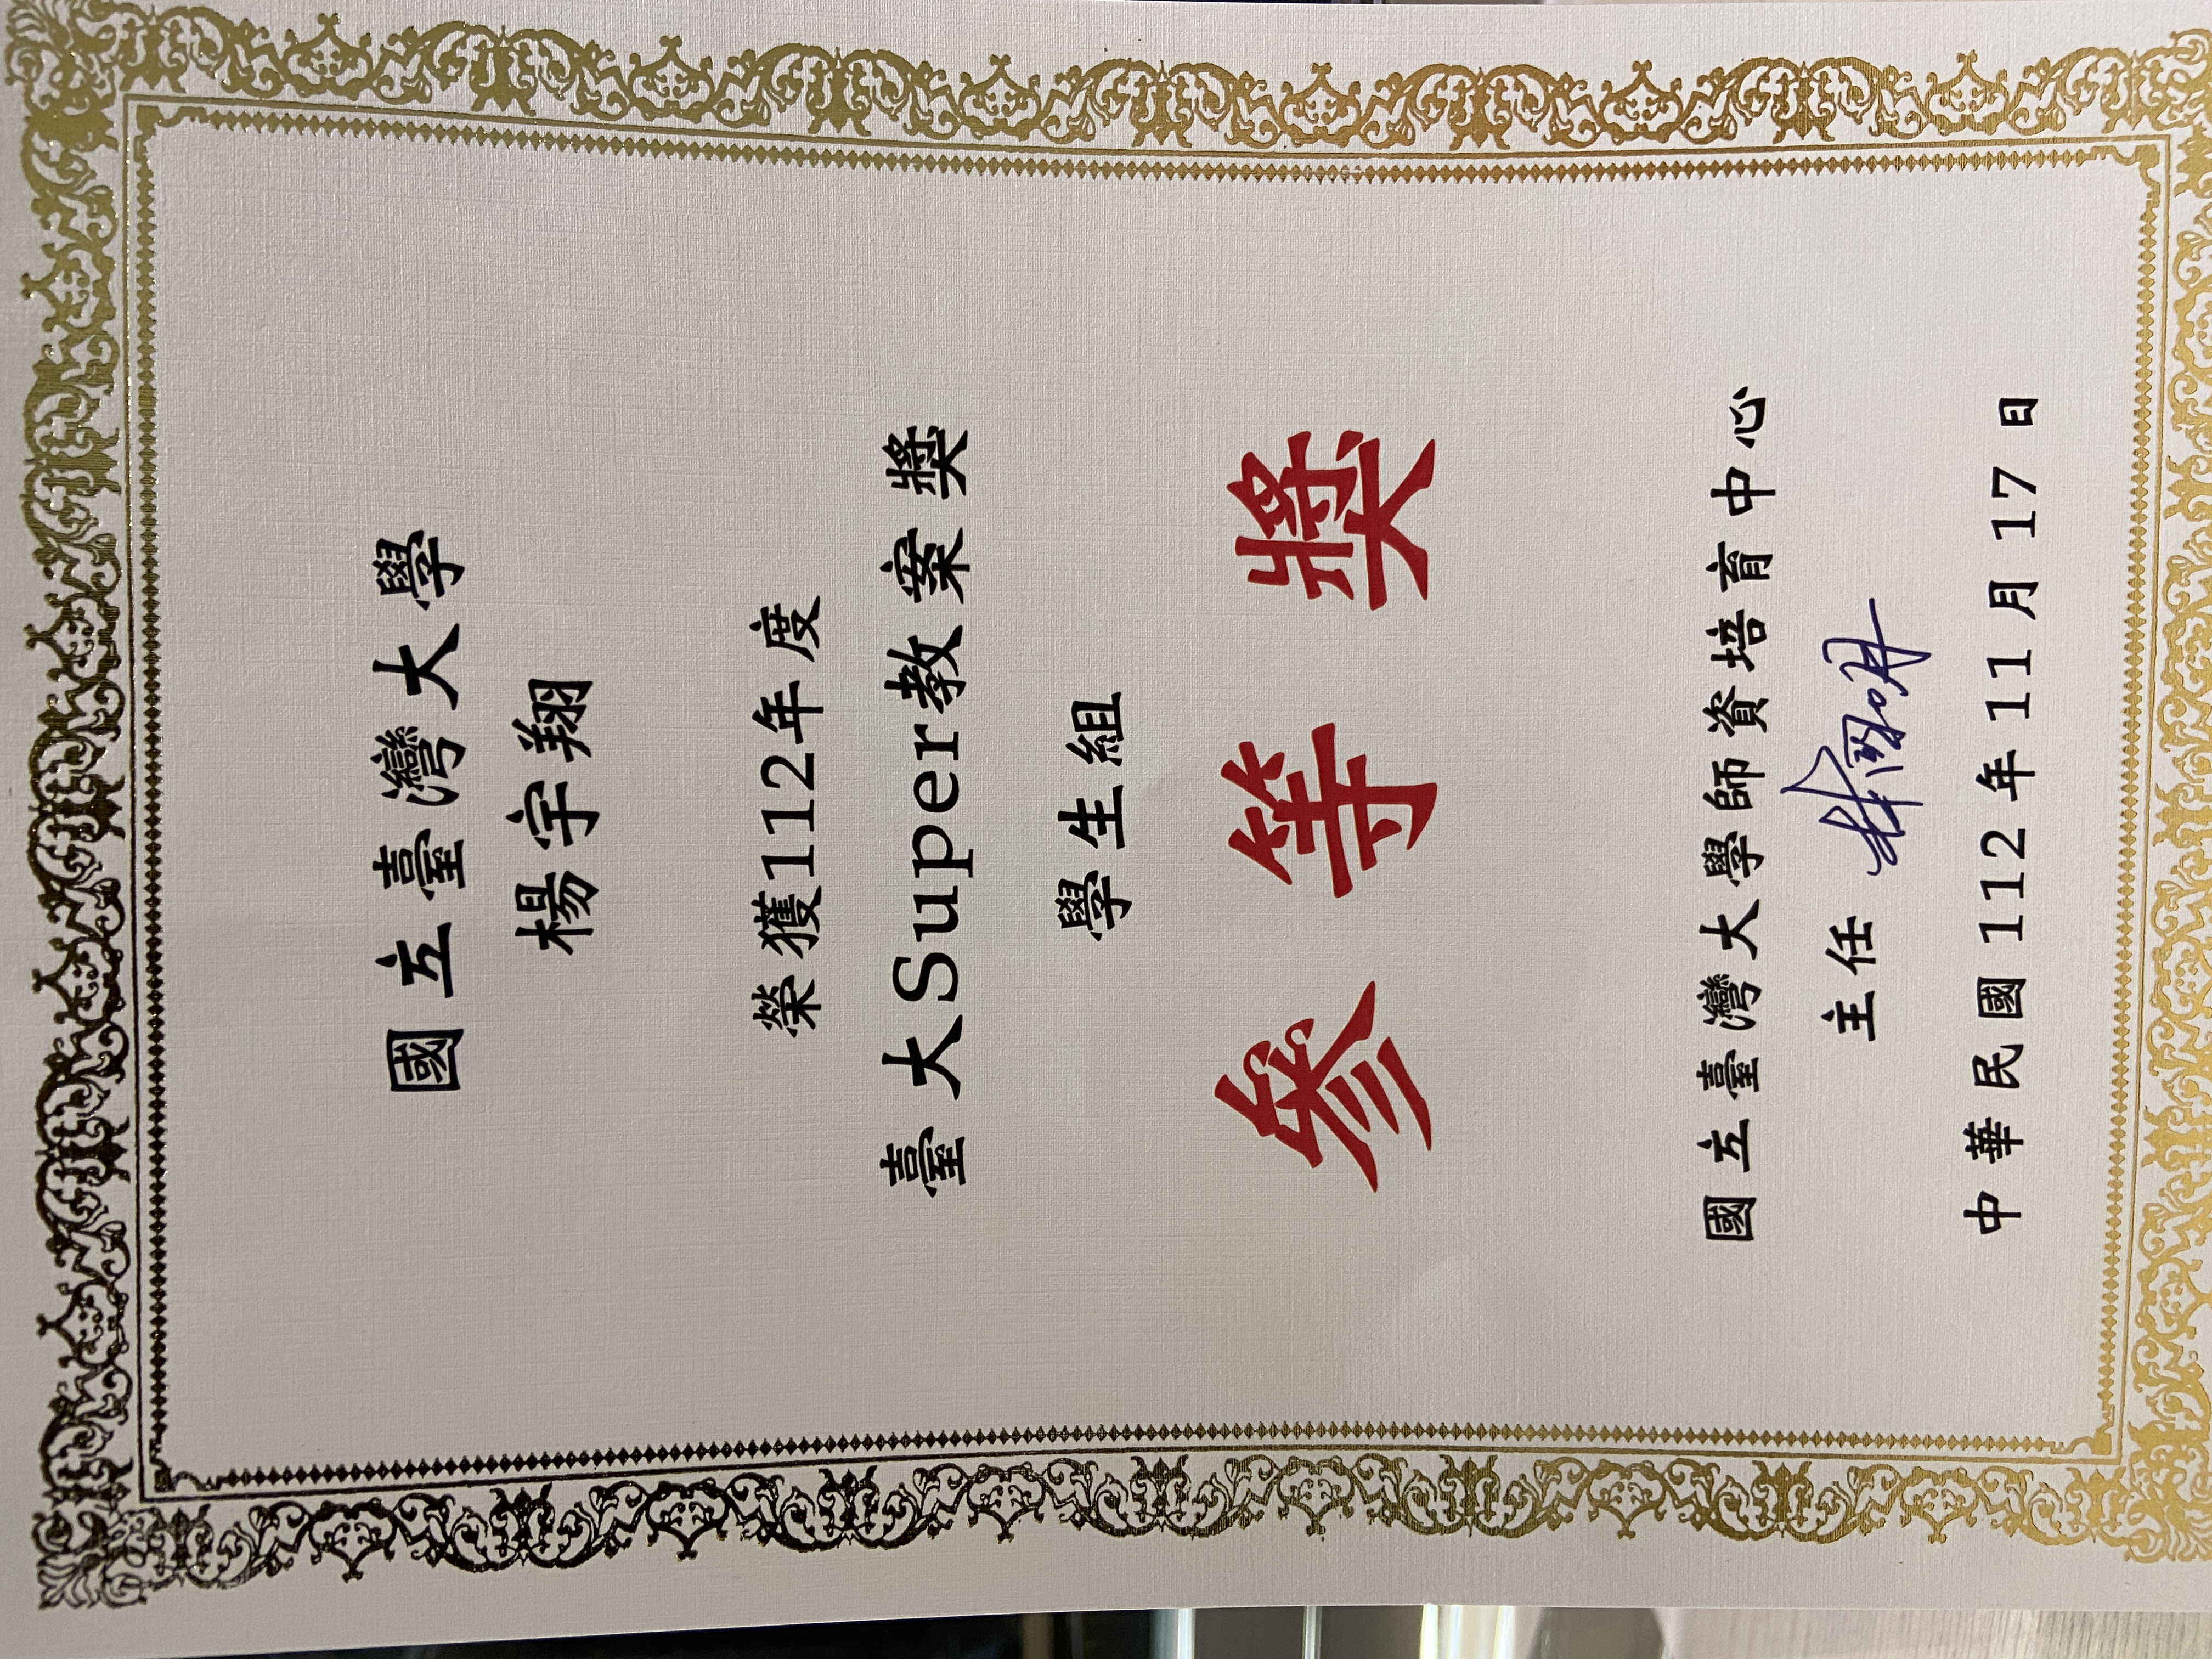 國立臺灣大學
楊宇翔
榮獲112年度
臺大Super教案獎
學生組
參等獎
國立臺灣大學師資培育中心
主任
中華民國112年11月17日